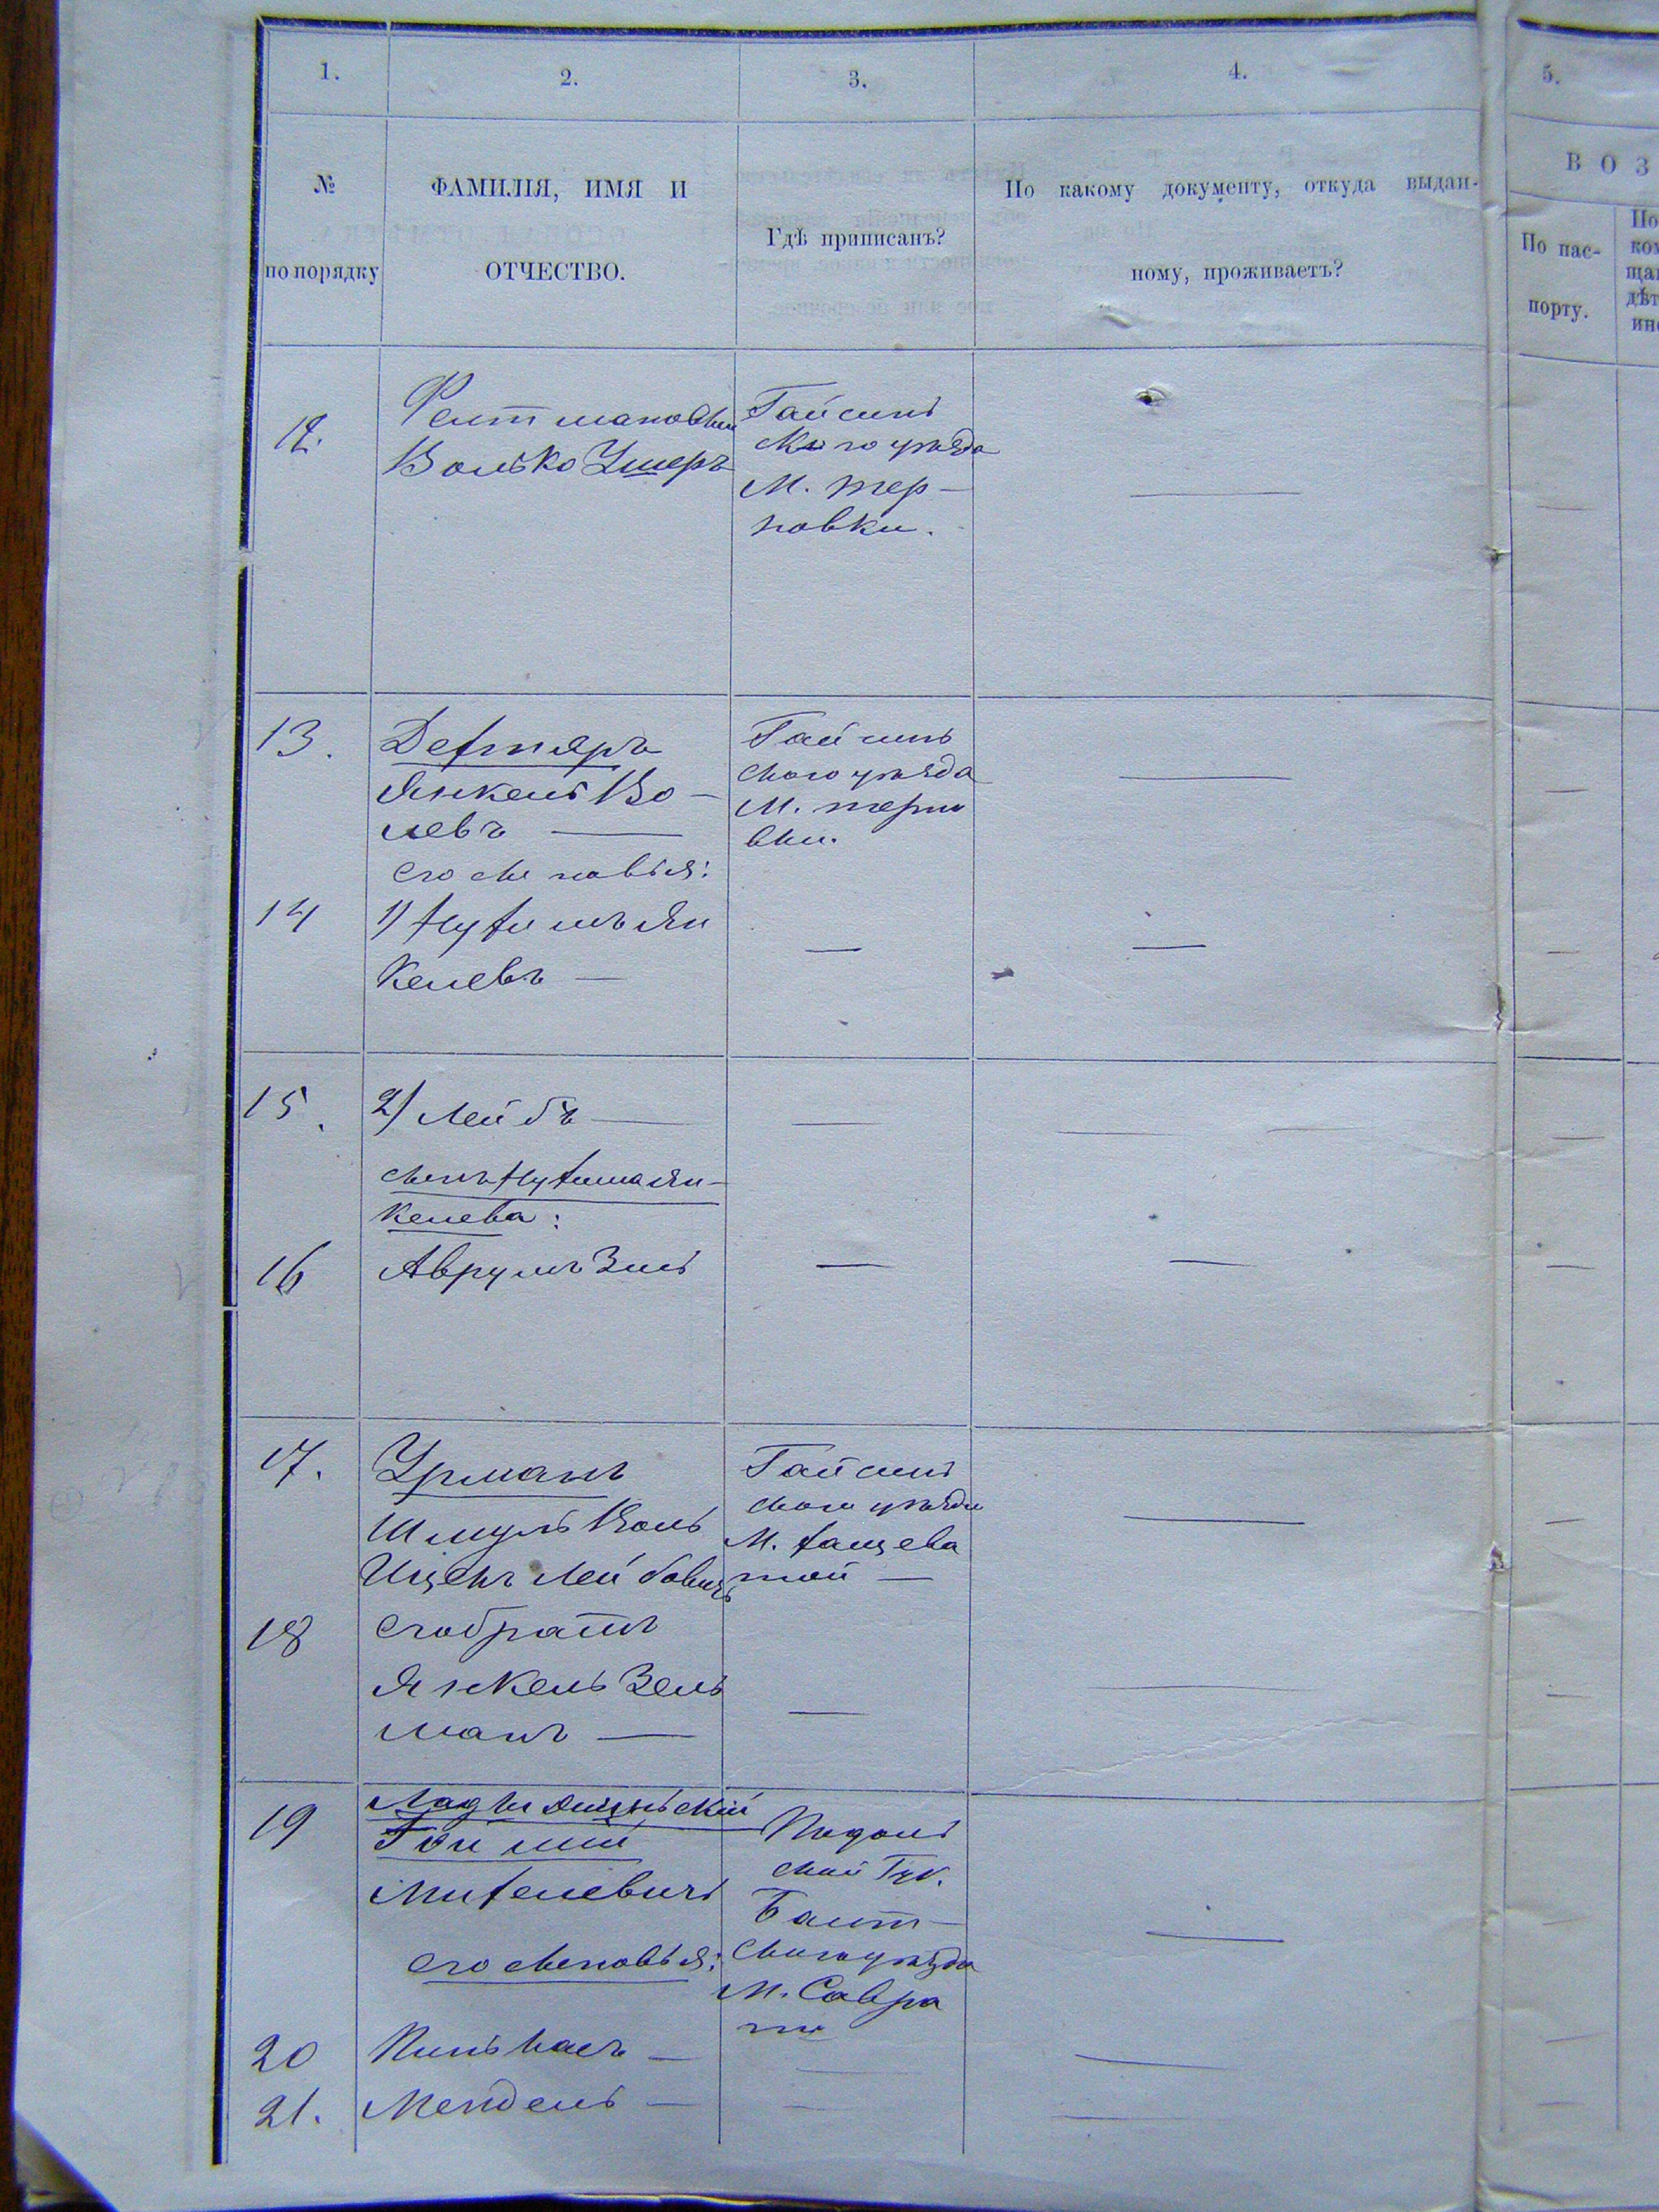 1.
2.
3.
4.
5.
№
по порядку
ФАМИЛІЯ, ИМЯ И
ОТЧЕСТВО.
Гдѣ приписанъ?
По какому документу, откуда выдан-
ному, проживаетъ?
В О З
По пас-
порту.
По
ком
ща
дѣт
ин
12.
Волько Ушеръ
Гайсинь
скаго уѣзда
М. Тер-
новки.
13.
Дехтяръ
Янкель Во-
левъ
его сыновья:
Гайсинь
скаго уѣзда
М. терно
вки.
14
1) Нухимъ Ян
келевъ
15.
2) Лейбъ
сынъ Нухима Ян-
келева:
16
Аврумъ Зиль
17.
Урманъ
Шмуль Воль
Ицекъ Лейбовичъ
Гайсинь
скаго уѣзда
М. Хащева
той
18
его братъ
Янкель Зель
манъ
19
Михелевичъ
его сыновья:
Подоль
ской Губ.
Балт-
скаго уѣзда
М. Савра
ни
20
Пиньхасъ
21.
Мендель